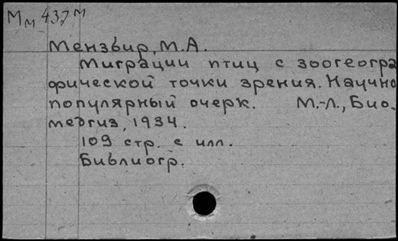 Мм 437м
Мензбир, М.А.
Миграции птиц с зоогеогра
фической точки зрения. Научно
популярный очерк. М.-Л., Био
медгиз, 1934.
109 стр. с илл.
Библиогр.